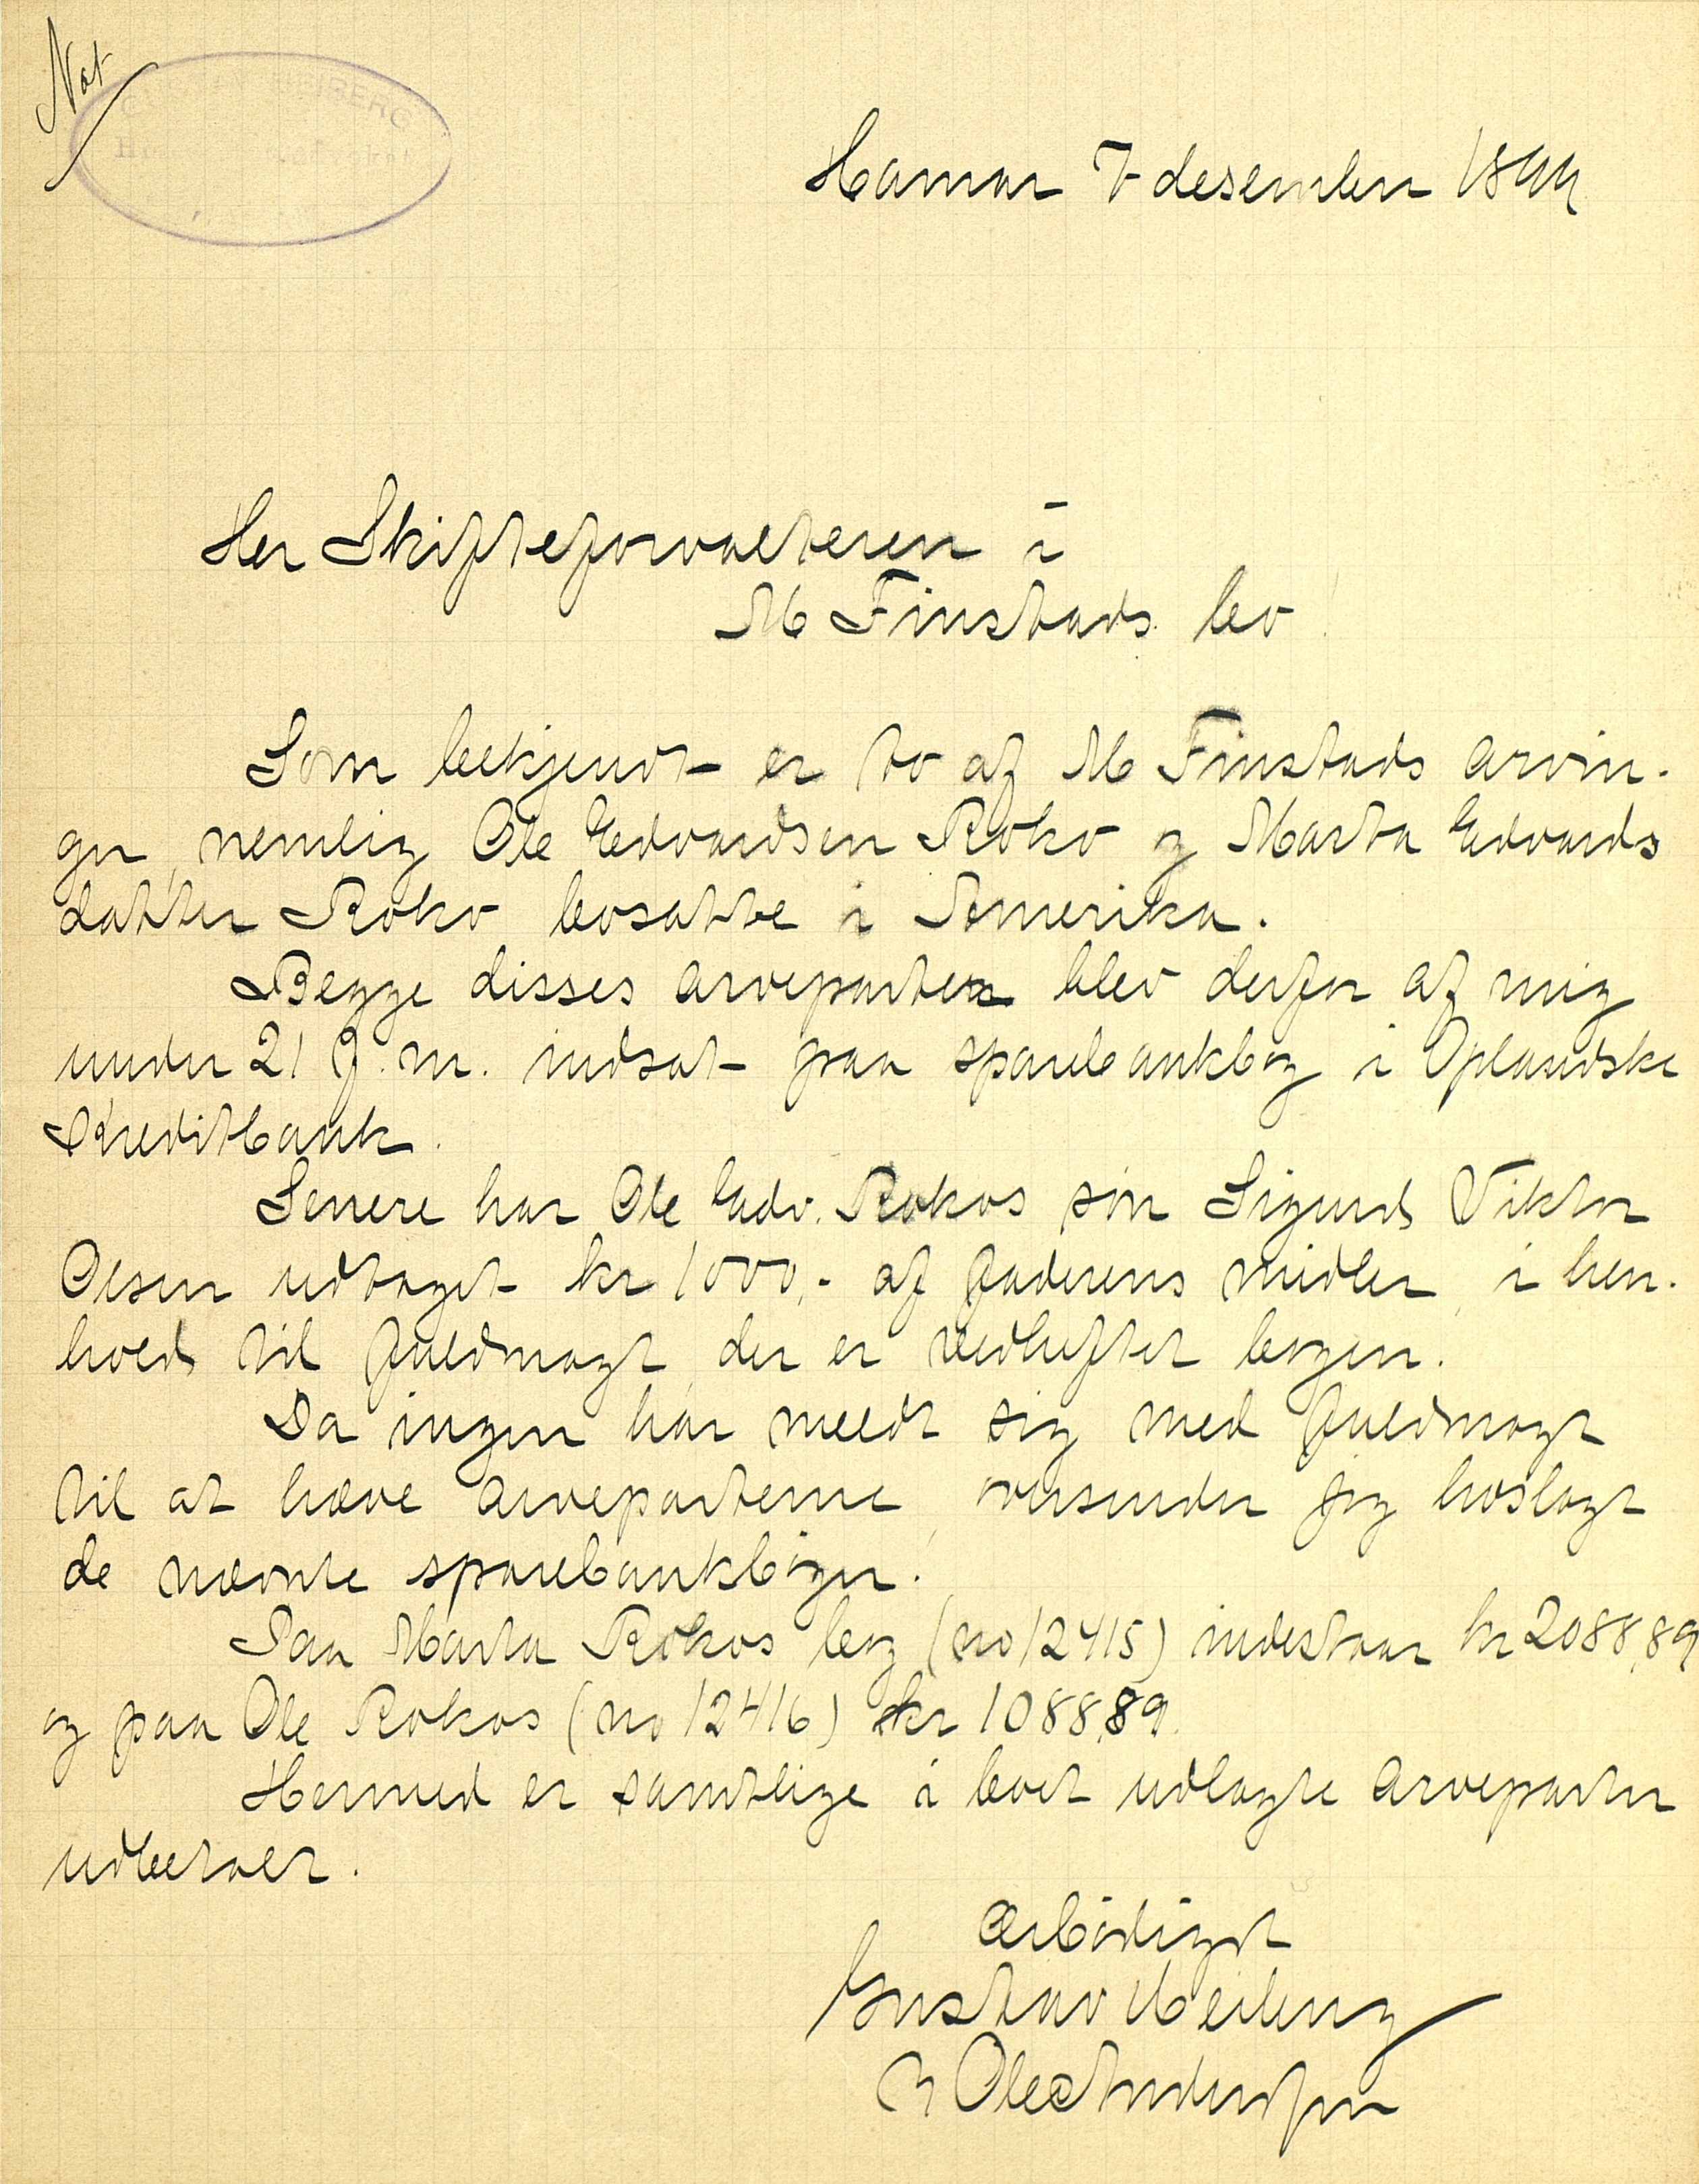 Not
HEIBERG
Hamar 7 desember 1899
Her Skifteforvalteren i
M Finstads bo
Som bekjendt er to af M Finstads arvin-
ger, nemlig Ole Edvardsen Roko og Marta Edvards
datter Roko bosatte i Amerika.
Begge disses arveparter blev derfor af mig
under 21 f. m. indsat paa sparebankbog i Oplandske
Kreditbank.
Senere har Ole Edv. Rokos søn Sigurd Viktor
Olsen udtaget kr 1000,- af faderens midler, i hen-
hold til fuldmagt, der er vedheftet bogen.
Da ingen har meldt sig med fuldmagt
til at hæve arveparterne, oversender jeg hoslagt
de nævnte sparebankbøger.
Paa Marta Rokos bog (no 12415) indestaar kr 2088,89
og paa Ole Rokos (no 12416) kr 1088,89.
Hermed er samtlige i boet udlagte arveparter
udbetalt.
Ærbødigst
Gustav Heiberg